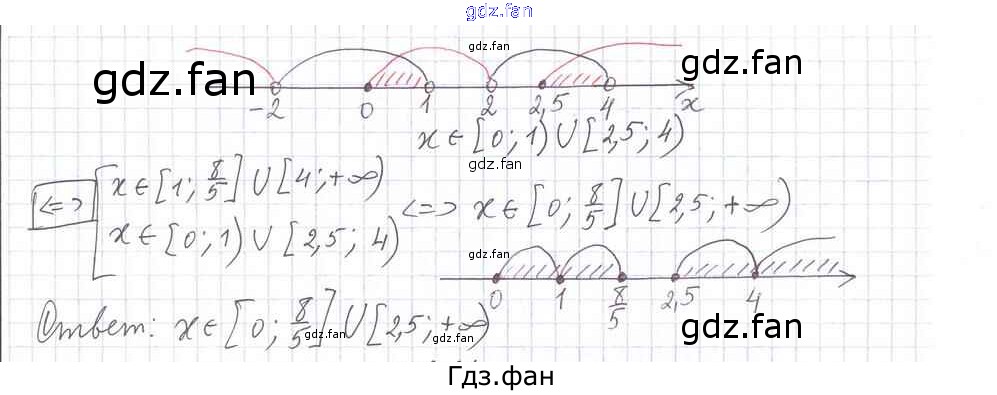 gdz.fan
gdz.fan
gdz.fan
gdz.fan
gdz.fan
-2 0 1 2 2,5 4 x
x ∈ [0; 1) ∪ [2,5; 4)
gdz.fan
<=> [ x ∈ [1; 8/5] ∪ [4; +∞)
x ∈ [0; 1) ∪ [2,5; 4)
<=> x ∈ [0; 8/5] ∪ [2,5; +∞)
gdz.fan
0 1 8/5 2,5 4
Ответ: x ∈ [0; 8/5] ∪ [2,5; +∞)
gdz.fan
gdz.fan
gdz.fan
Гдз.фан